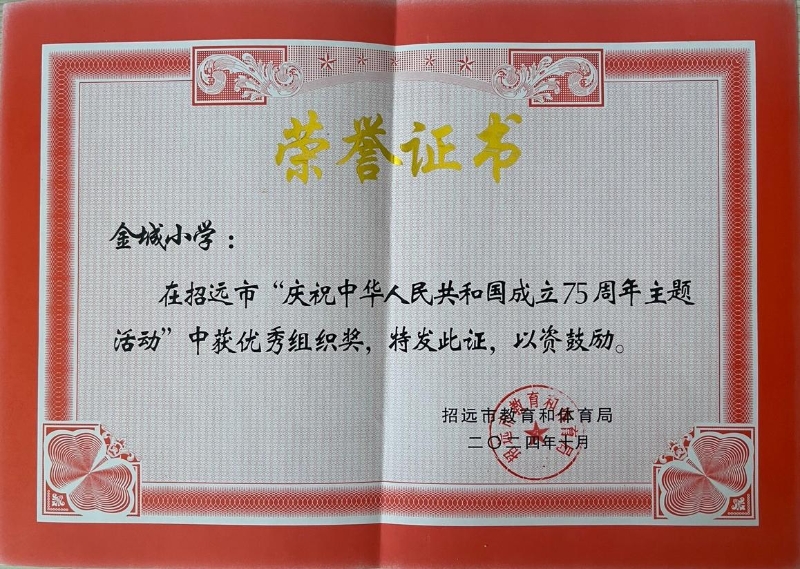 荣誉证书
金城小学：
在招远市“庆祝中华人民共和国成立75周年主题
活动”中获优秀组织奖，特发此证，以资鼓励。
招远市教育和体育局
二〇二四年十月
招远市教育和体育局